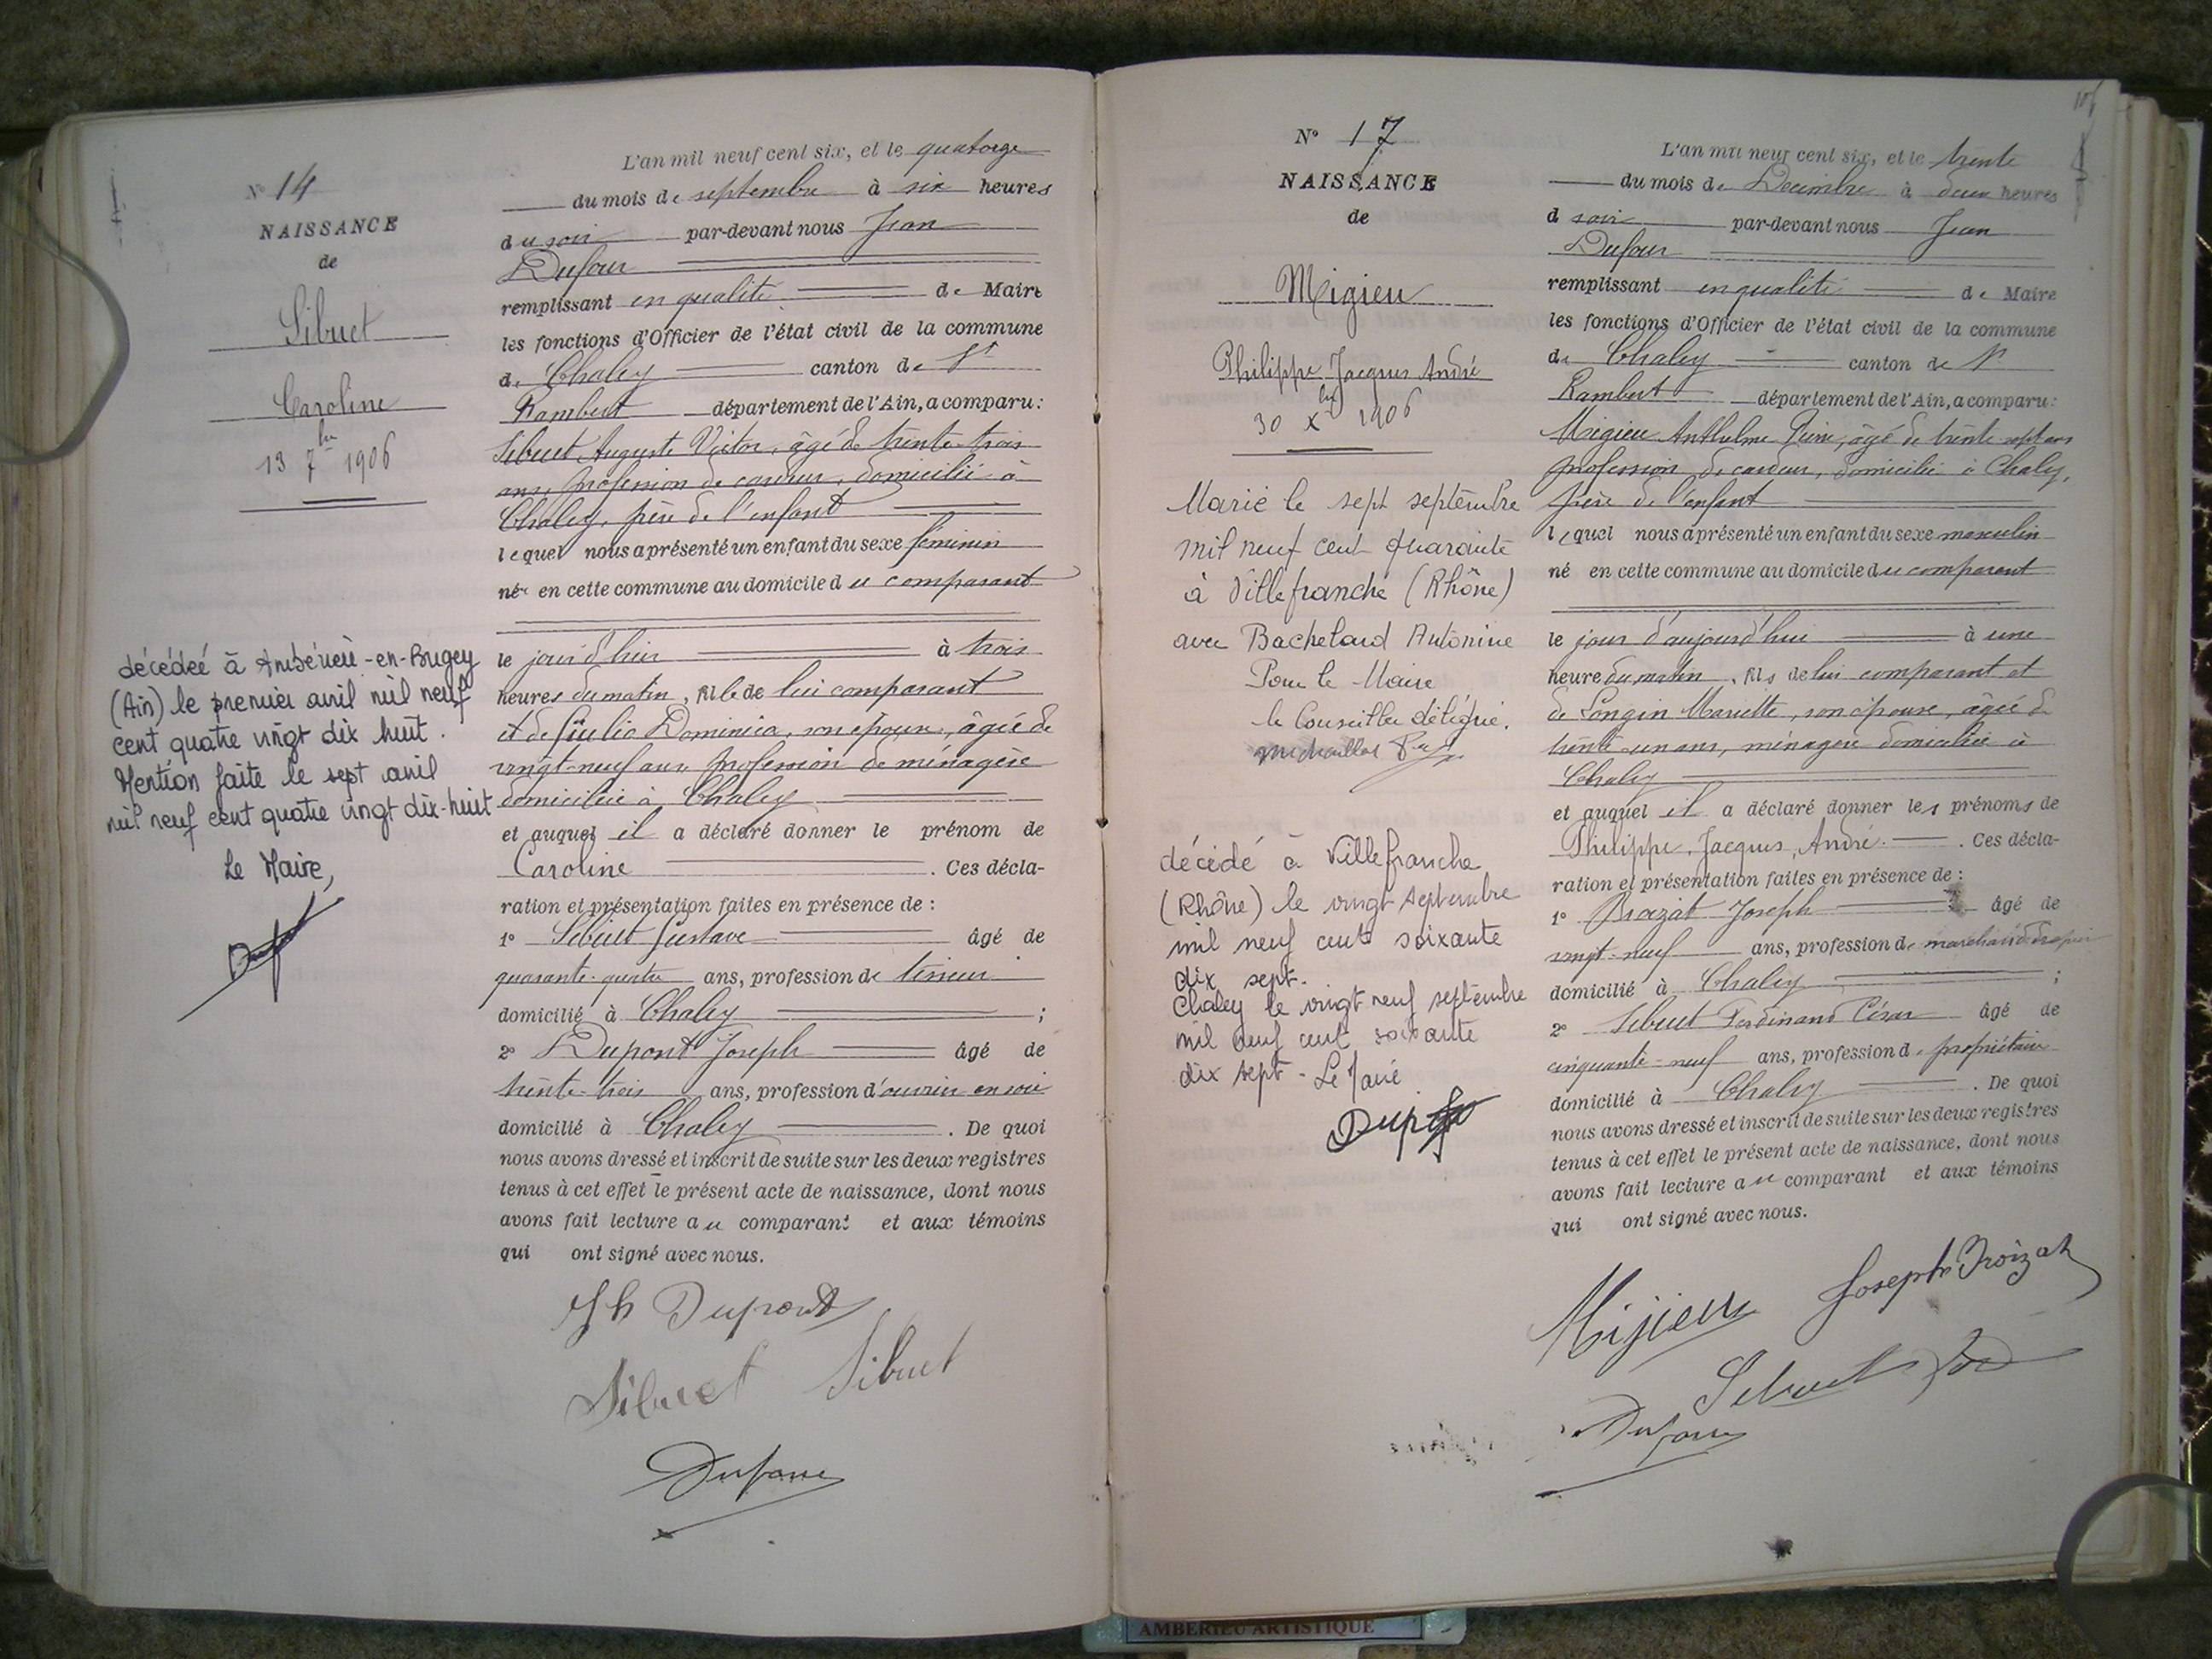 N° 14
NAISSANCE
de
Sibuet
Caroline
13 7bre 1906
décédée à Ambérieu-en-Bugey
(Ain) le premier avril mil neuf
cent quatre vingt dix huit.
Mention faite le sept avril
mil neuf cent quatre vingt dix-huit
Le Maire,
L'an mil neuf cent six, et le quatorze
du mois de septembre à six heures
du soir par-devant nous Jean
Dufour
remplissant en qualité de Maire
les fonctions d'Officier de l'état civil de la commune
de Chaley canton de St
Rambert département de l'Ain, a comparu :
Sibuet Auguste Victor, âgé de trente-trois
ans, profession de cardeur, domicilié à
Chaley, père de l'enfant
lequel nous a présenté un enfant du sexe féminin
née en cette commune au domicile du comparant
le jour d'hier à trois
heures du matin, fille de lui comparant
et de Giulio Dominica, son épouse, âgée de
vingt-neuf ans profession de ménagère
domiciliée à Chaley
et auquel il a déclaré donner le prénom de
Caroline . Ces décla-
ration et présentation faites en présence de :
1° Sibuet Gustave âgé de
quarante-quatre ans, profession de tisseur
domicilié à Chaley ;
2° Dupont Joseph âgé de
trente-trois ans, profession d'ouvrier en soie
domicilié à Chaley . De quoi
nous avons dressé et inscrit de suite sur les deux registres
tenus à cet effet le présent acte de naissance, dont nous
avons fait lecture au comparant et aux témoins
qui ont signé avec nous.
Jh Dupont
Sibuet Sibuet
Dufour
N° 17
NAISSANCE
de
Migieu
Philippe Jacques André
30 Xbre 1906
Marié le sept septembre
mil neuf cent quarante
à Villefranche (Rhône)
avec Bachelard Antonine
Pour le Maire
le Conseiller délégué.
décédé à Villefranche
(Rhône) le vingt septembre
mil neuf cent soixante
dix sept.
Chaley le vingt neuf septembre
mil neuf cent soixante
dix sept - Le Maire
L'an mil neuf cent six, et le trente
du mois de Décembre à deux heures
d soir par-devant nous Jean
Dufour
remplissant en qualité de Maire
les fonctions d'Officier de l'état civil de la commune
de Chaley canton de St
Rambert département de l'Ain, a comparu :
Migieu Anthelme Pierre, âgé de trente sept ans
profession de cardeur, domicilié à Chaley,
père de l'enfant
lequel nous a présenté un enfant du sexe masculin
né en cette commune au domicile du comparant
le jour d'aujourd'hui à une
heure du matin, fils de lui comparant et
de Longin Mariette, son épouse, âgée de
trente-un ans, ménagère domiciliée à
Chaley
et auquel il a déclaré donner les prénoms de
Philippe, Jacques, André. . Ces décla-
ration et présentation faites en présence de :
1° Joseph âgé de
vingt-neuf ans, profession de marchand drapier
domicilié à Chaley ;
2° Sibuet Ferdinand César âgé de
cinquante-neuf ans, profession de propriétaire
domicilié à Chaley . De quoi
nous avons dressé et inscrit de suite sur les deux registres
tenus à cet effet le présent acte de naissance, dont nous
avons fait lecture au comparant et aux témoins
qui ont signé avec nous.
Migieu Joseph
Sibuet
Dufour
AMBERIEU ARTISTIQUE